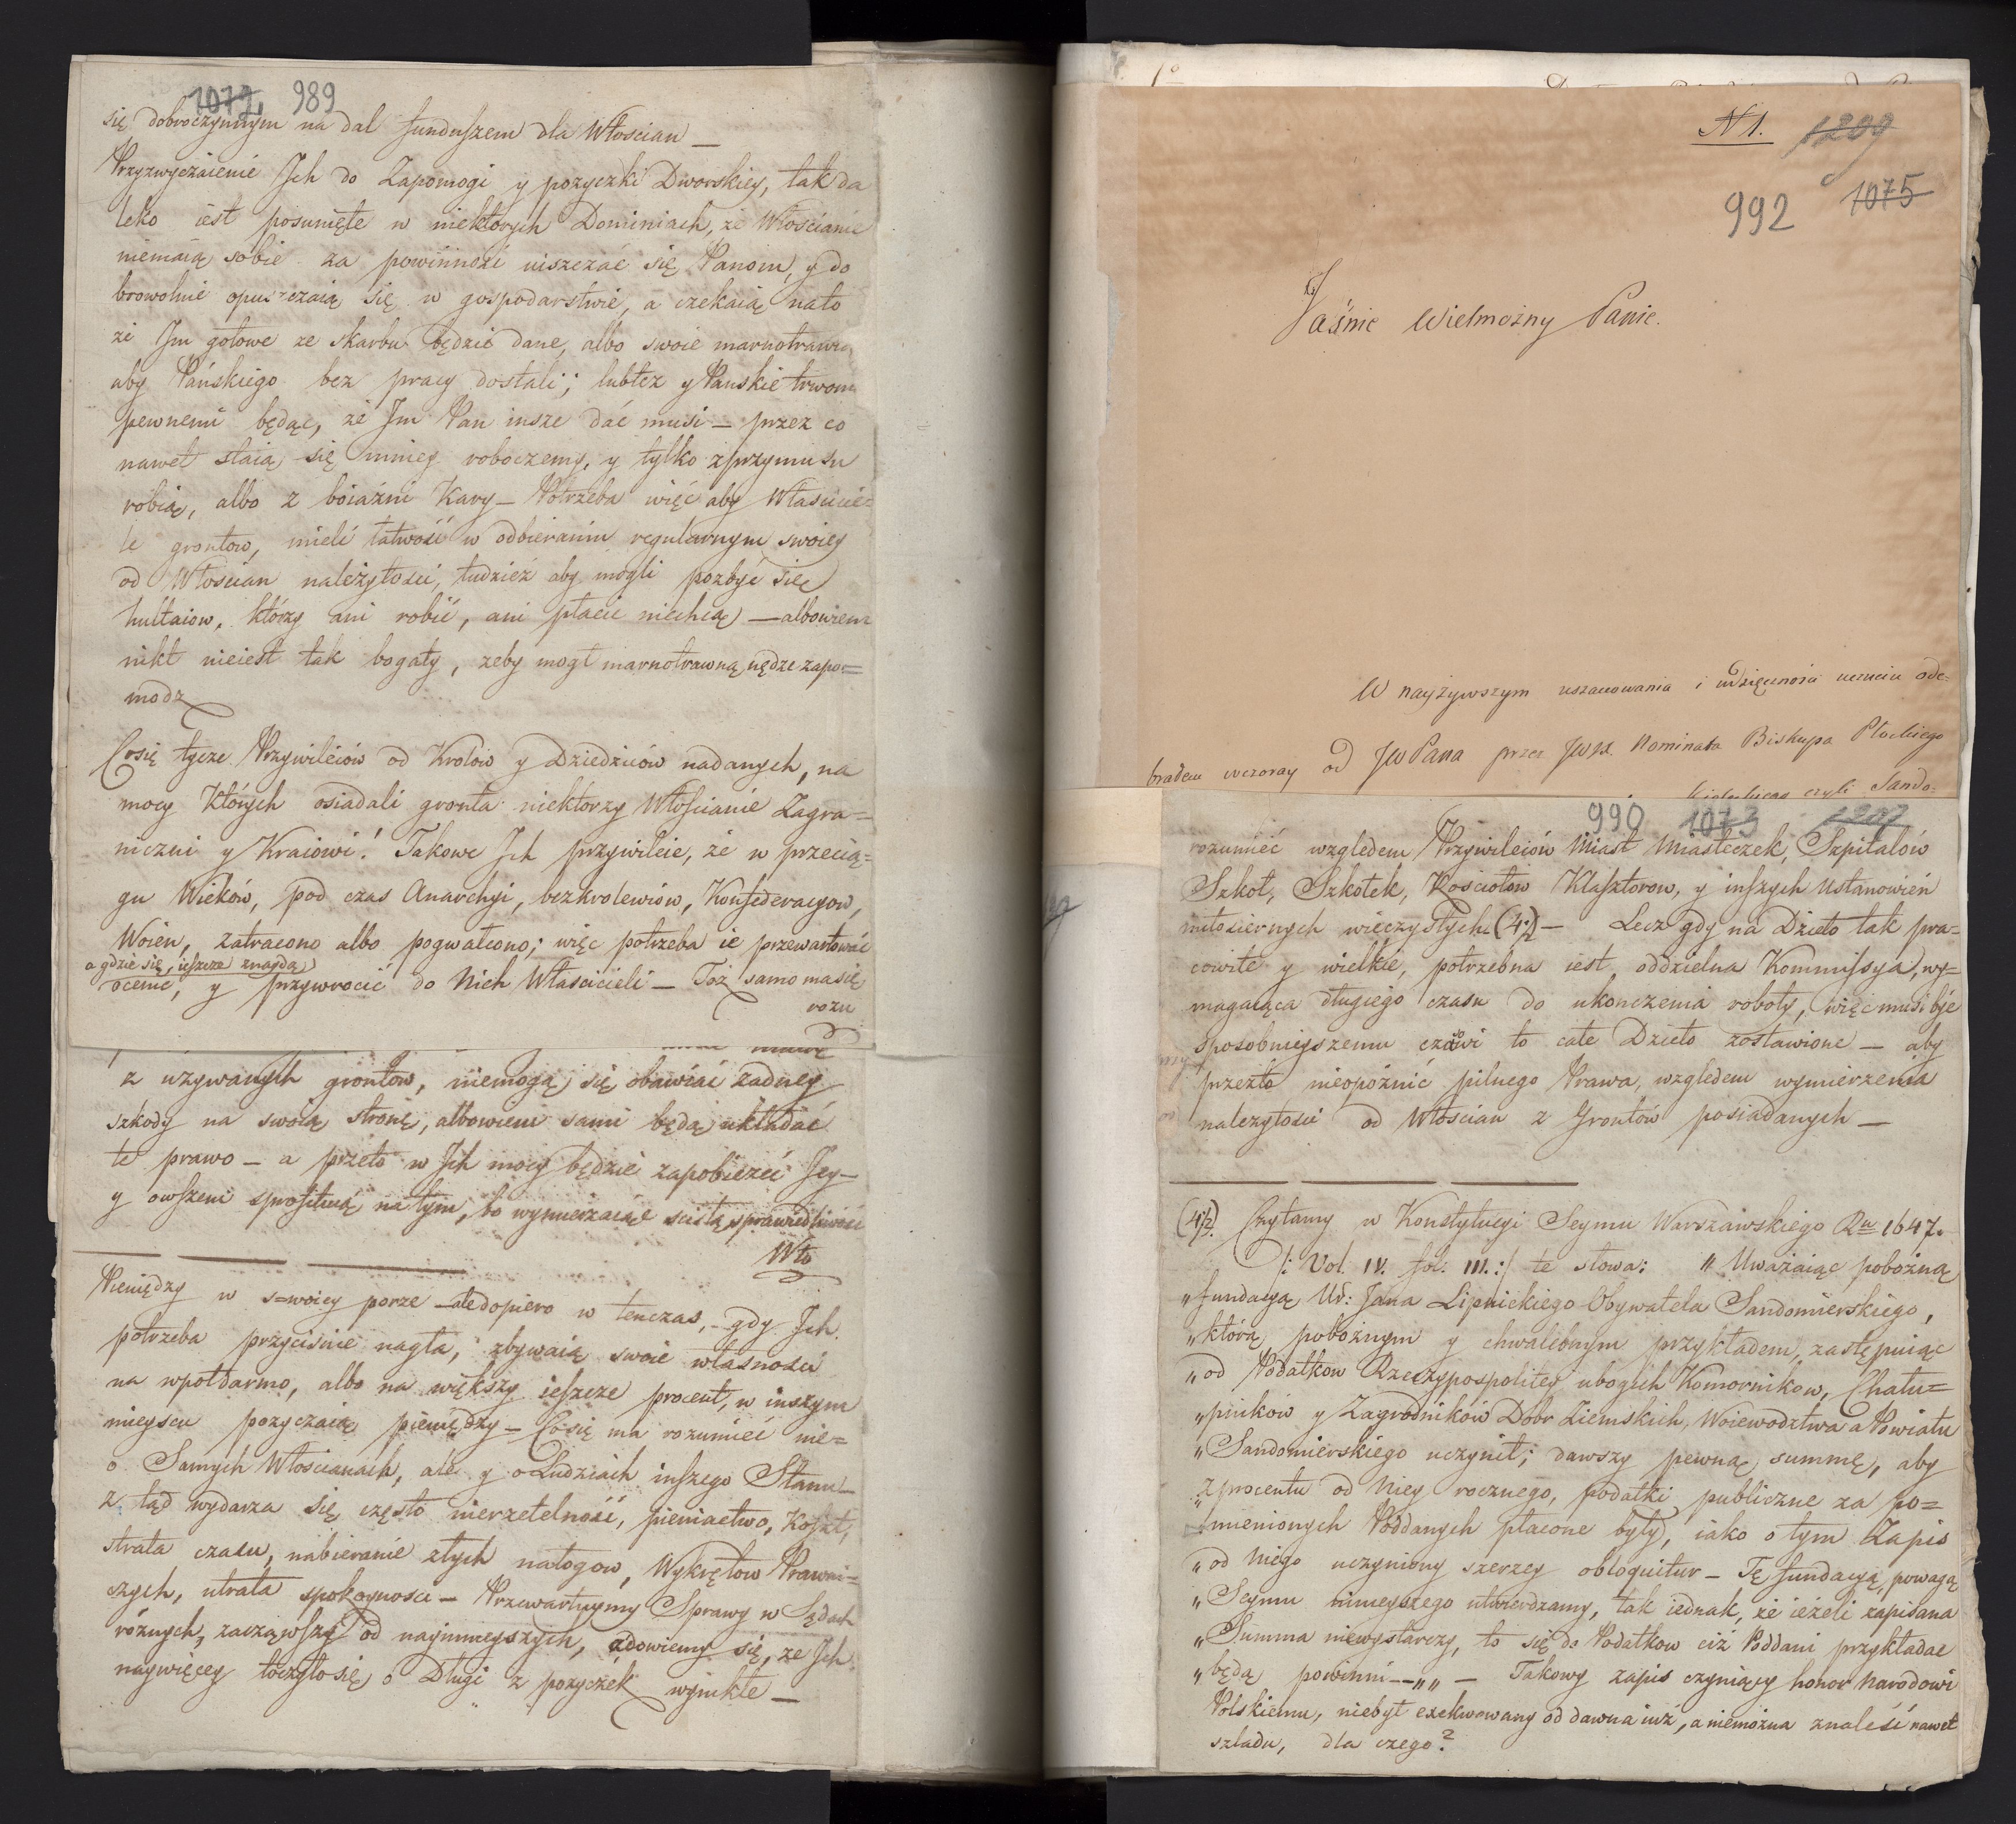 1072 989
się dobroczynnym na dal funduszem dla Włoscian —
Przyzwyczaienie Jch do Zapomogi y pozyczki Dworskiey, tak da
leko iest posunięte w niektorych Dominiach, ze Włościanie
niemaią sobie za powinność uiszczać się Panom, y do
browolnie opuszczaią się w gospodarstwie, a czekaią nato
że Jm gotowe ze skarbu będzie dane, albo swoie marnotrawią
aby Pańskiego bez pracy dostali; lubtez y Pauskie trwonią
pewnemi będąc, że Jm Pan insze dać musi — przez co
nawet staią się mniey roboczemi, y tylko z przymusu
robią, albo z boiaźni Kary — Potrzeba więc aby Własciciel=
le grontow, mieli łatwość w odbieraniu regularnym swoiey
od Włoscian należytosci, tudzież aby mogli pozbyć się
hultaiow, którzy ani robić, ani płacic niechcą — albowiem
nikt nieiest tak bogaty, zeby mogł marnotrawną nędze zapo=
modz
Cosię tycze Przywileiów od Krolów y Dziedziców nadanych, na
mocy których osiadali gronta niektorzy Włościanie Zagra=
niczni y Kraiowi! Takowe Jch przywileie, że w przecią=
gu Wieków, pod czas Anarchyi, bezkrolewiow, Konfederacyow,
Woien, zatracono albo pogwałcono; więc potrzeba ie przewartować
a gdzie się, ieszcze znayda
ocenić, y przywrocić do Nich Własciceli — Toż samo masię
rozu
z uzywanych grontow, niemogą się obawiać żadney
szkody na swoią stronę, albowiem sami będą układać
te prawo — a przeto w Jch mocy będzie zapobiezeć Jey —
y owszem sprofituią na tym, bo wymierzaiąc scisłą sprawiedliwość
Wło
Pieniędzy w swoiey porze — ale dopiero w tenczas, gdy Jch
potrzeba przyciśnie nagła, zbywaią swoie własności
na wpołdarmo, albo na większy ieszcze procent, w inszym
mieyscu pozyczaią pieniędzy — Cosię ma rozumieć nie=
o Samych Włoscianach, ale y o Ludziach inszego Stanu —
z tąd wydarza się często nierzetelność, pieniactwo, Koszt,
strata czasu, nabieranie złych nałogow, Wykrętow Prawni=
czych, utrata spokoynosci — Przewartuymy Sprawy w Sądach
różnych, zacząwszy od naymnieyszych, a dowiemy się, ze Jch
naywięcey toczyłosię o Długi z pozyczek wynikłe —
N 1. 1209
992 1075
Jaśnie Wielmożny Panie.
W nayżywszym uszanowania i wdzięcznosci uczuciu ode=
brałem wczoray od JW Pana przez JWX. Nominata Biskupa Płockiego
czyli Sando=
990 1073 1207
rozumieć względem Przywileiów Miast Miasteczek, Szpitalów
Szkoł, Szkołek, Kościołow Klasztorow, y inszych Ustanowień
miłosiernych wieczystych (4½) — Lecz gdy na Dzieło tak pra=
cowite y wielkie, potrzebna iest oddzielna Kommissya, wy=
magaiąca długiego czasu do ukonczenia roboty, więc musi być
sposobnieyszemu czasowi to całe Dzieło zostawione — aby
przezto nieopoźnić pilnego Prawa, względem wymierzenia
nalezytosci od Włościan z Grontów posiadanych —
(4½). Czytamy w Konstytucyi Seymu Warszawskiego Ru 1647.
/: Vol. IV. fol. 111. :/ te słowa: „Uważaiąc pobożną
„fundacyą Ur: Jana Lipnickiego Obywatela Sandomierskiego,
„którą pobożnym y chwalebnym przykładem, zastępuiąc
„od Podatkow Rzeczypospolitey ubogich Komornikow, Chału=
„pników y Zagrodników Dobr Ziemskich, Woiewodztwa a Powiatu
„Sandomierskiego uczynił; dawszy pewną summę, aby
„z procentu od Niey rocznego, podatki publiczne za po=
„mienionych Poddanych płacone były, iako o tym Zapis
„od Niego uczyniony szerzey obloquitur — Tę fundacyą, powagą
„Seymu ninieyszego utwierdzamy, tak iednak, że ieżeli zapisana
„Summa niewystarczy, to się do Podatkow ciż Poddani przykładac
„będą powinni — „ „ — Takowy zapis czyniący honor Narodowi
Polskiemu, niebył exekwowany od dawna iuż, a niemożna znaleść nawet
szladu, dla czego?